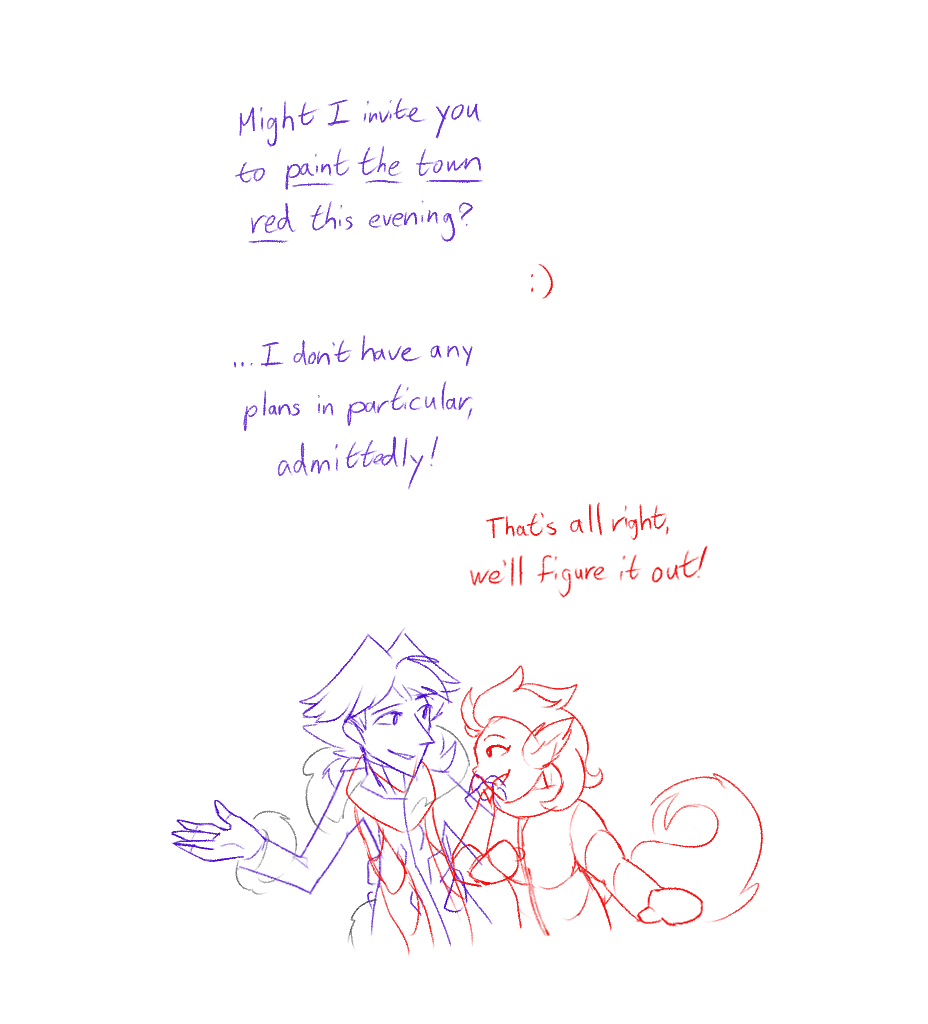 Might I invite you
to paint the town
red this evening?
:)
...I don't have any
plans in particular,
admittedly!
That's all right,
we'll figure it out!